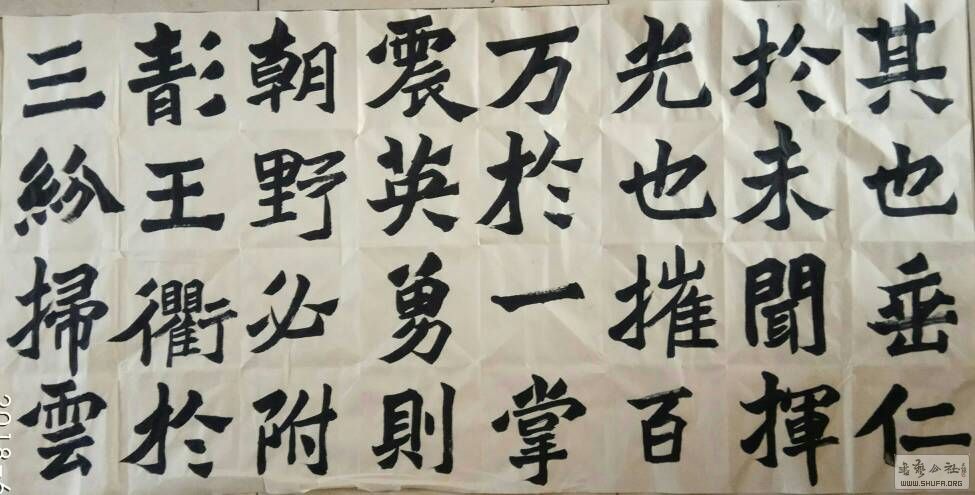 其也垂仁
於未聞揮
光也摧百
万於一掌
震英勇則
朝野必附
彰王衢於
三紛掃雲
2018-
WWW.SHUFA.ORG